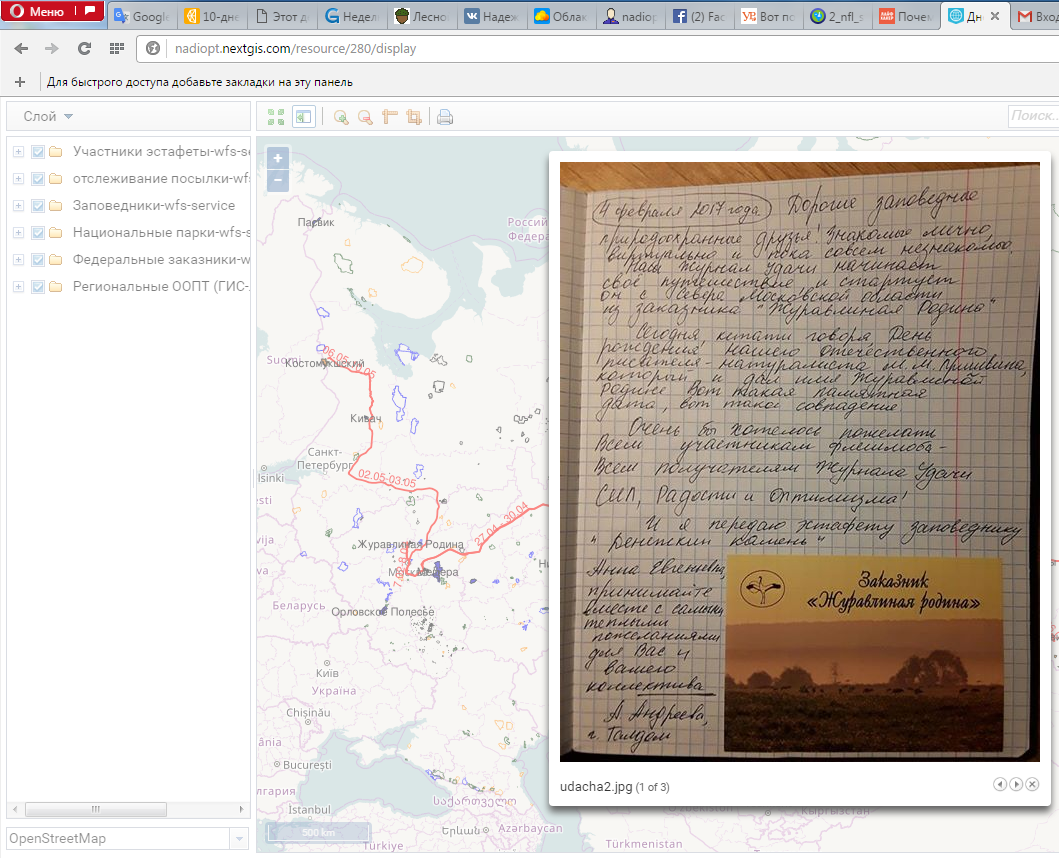 Меню
Google
10-дне
Этот д
Недел
Лесно
Надеж
Облак
nadiop
(2) Fac
Вот по
2_nfl_s
Почем
Дн
Вход
nadiopt.nextgis.com/resource/280/display
Для быстрого доступа добавьте закладки на эту панель
Слой
Поиск...
Участники эстафеты-wfs-se
отслеживание посылки-wfs
Заповедники-wfs-service
Национальные парки-wfs-s
Федеральные заказники-w
Региональные ООПТ (ГИС-
OpenStreetMap
+
−
Пасвик
Россий
Федера
Suomi
Костомукшский
Кивач
Санкт-
Петербург
elsinki
esti
02.05-03.05
27.04 - 30.04
Журавлиная Родина
Москва
Мещера
Орловское Полесье
Беларусь
Київ
Україна
Chișinău
București
Istanbul
Türkiye
საქართველო
Երևան
Azərbaycan
Türkmenistan
500 km
4 февраля 2017 года Дорогие заповедные
природоохранные друзья! Знакомые лично,
виртуально и пока совсем незнакомые.
Наш Журнал Удачи начинает
своё путешествие и стартует
он с севера Московской области
из заказника "Журавлиная Родина"
Сегодня, кстати говоря, День
рождения нашего отечественного
писателя-натуралиста М.М. Пришвина,
который и дал имя Журавлиной
родине. Вот такая памятная
дата, вот такое совпадение.
Очень бы хотелось пожелать
Всем участникам флешмоба -
Всем получателям Журнала Удачи
Сил, Радости и Оптимизма!
И я передаю эстафету заповеднику
"Денежкин камень"
Анна Евгеньевна,
принимайте
вместе с самыми
теплыми
пожеланиями
для Вас и
вашего
коллектива
А. Андреева,
г. Талдом
Заказник
«Журавлиная родина»
udacha2.jpg (1 of 3)